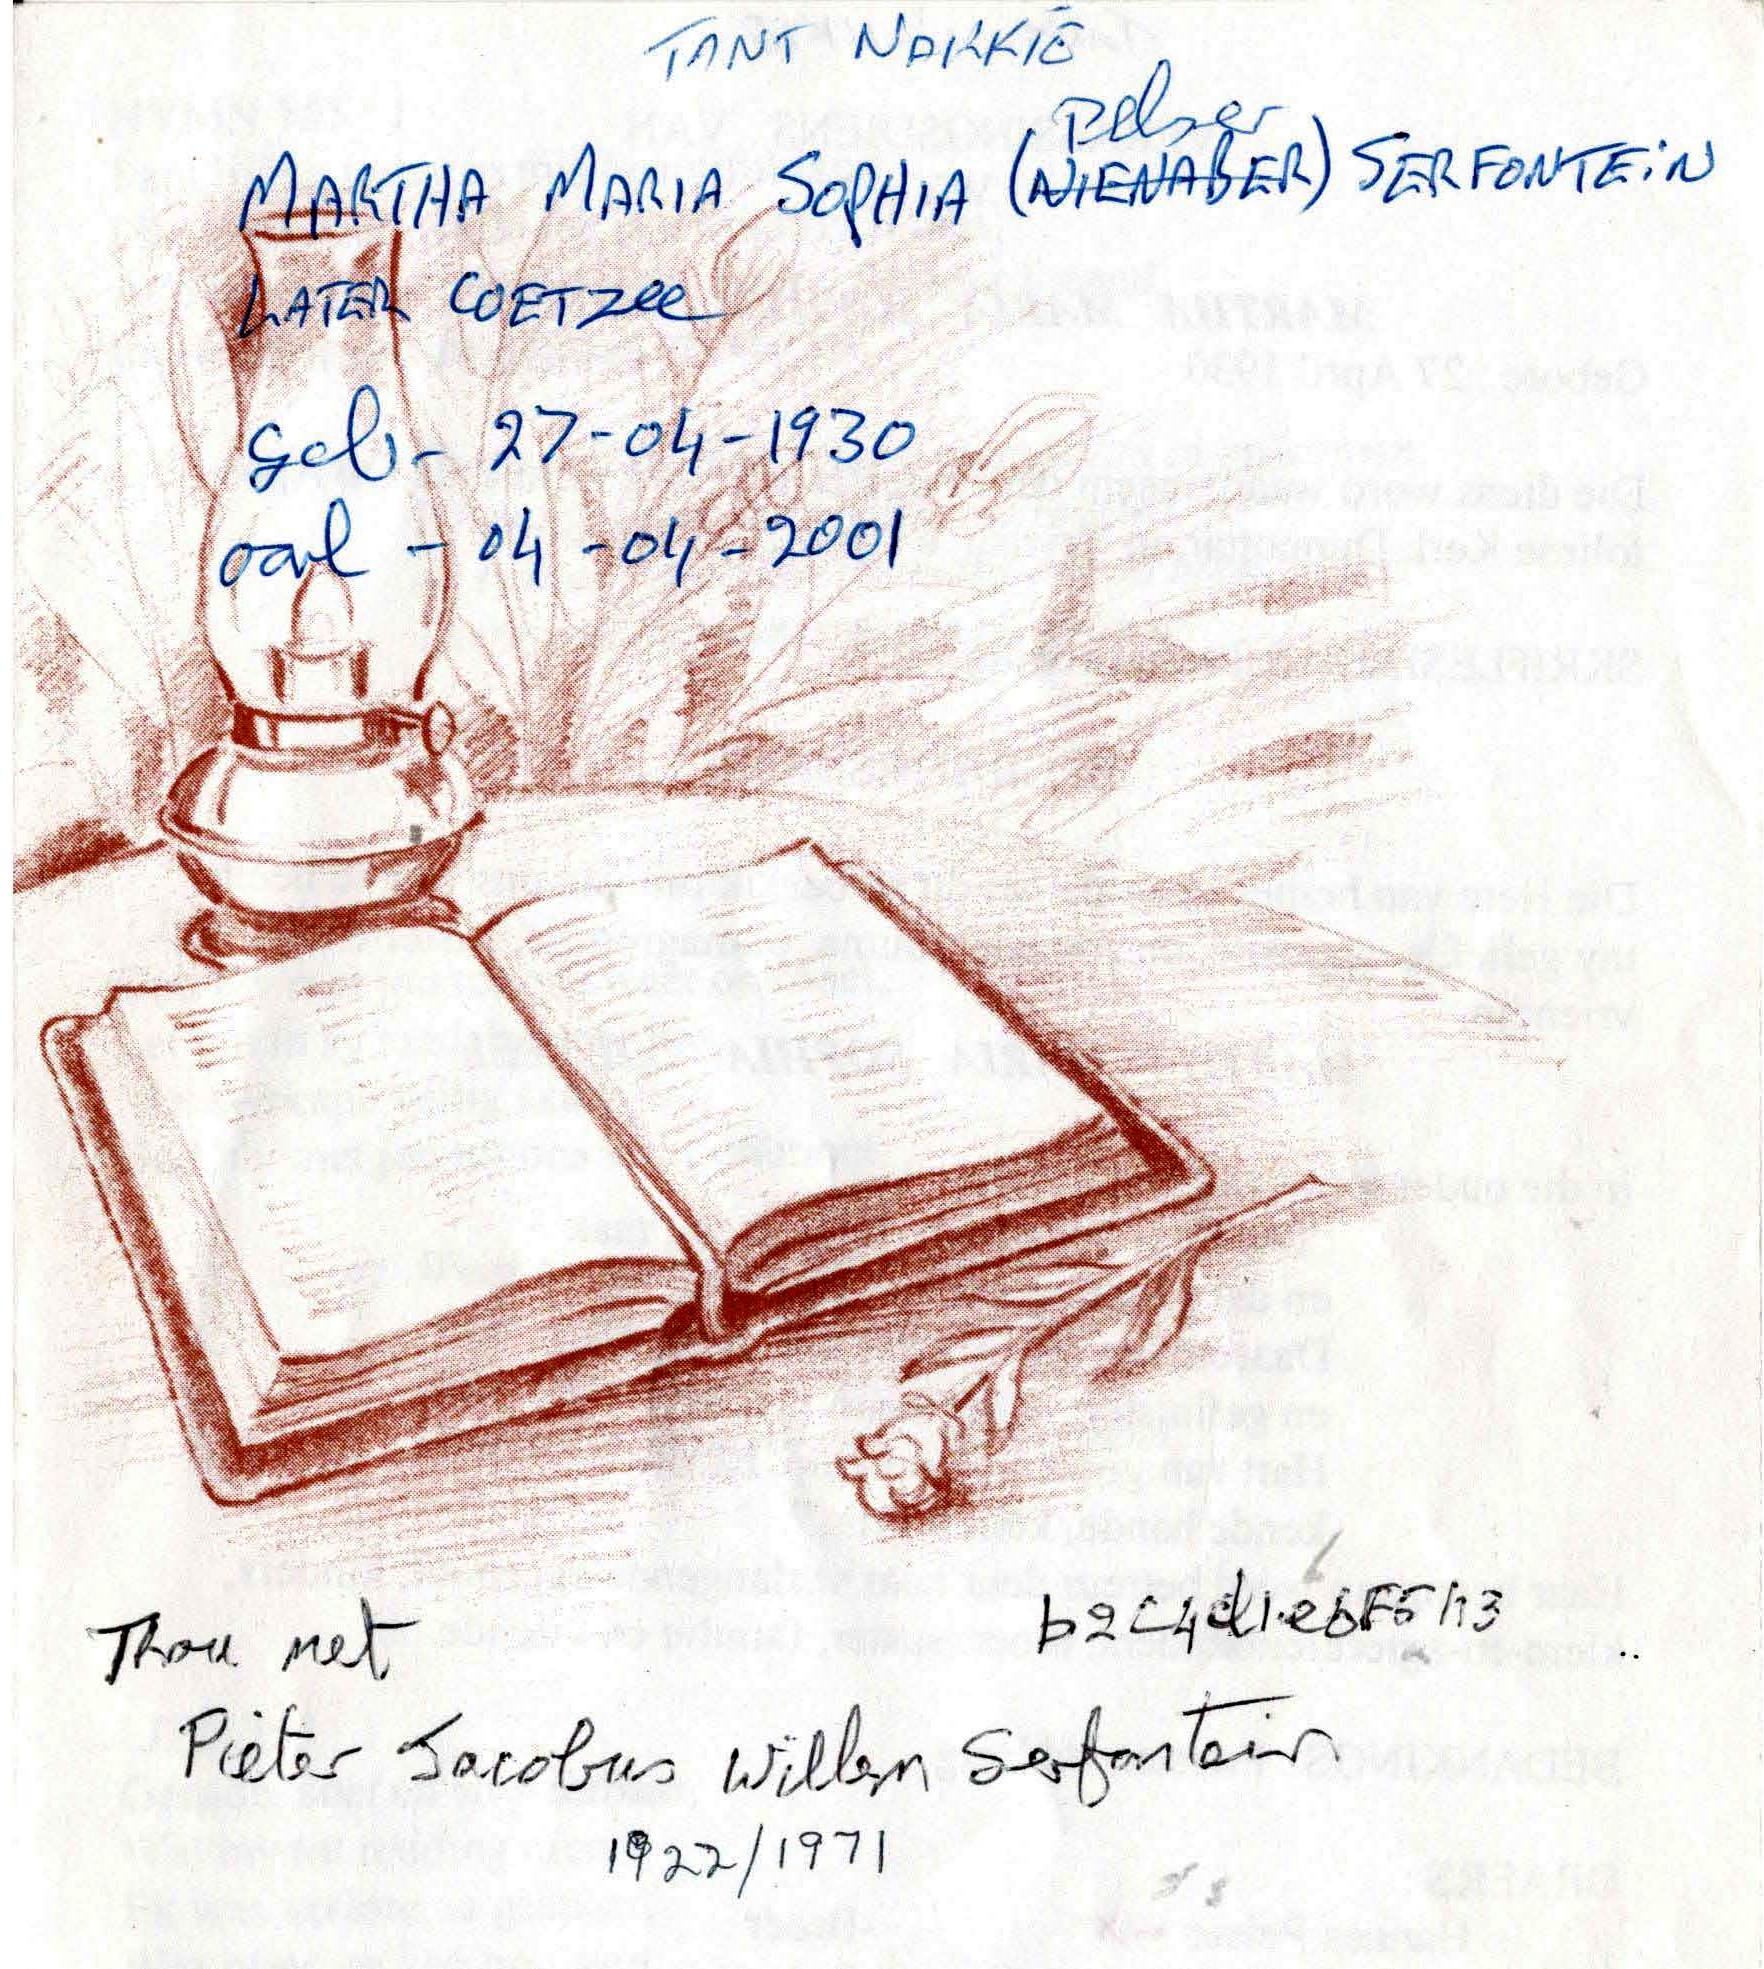 TANT NAKKIE
Pelser
MARTHA MARIA SOPHIA (NIENABER) SERFONTEIN
LATER COETZEE
geb - 27-04-1930
oorl - 04-04-2001
Trou met
b2c4d1e6F5h3
Pieter Jacobus Willem Serfontein
1922/1971